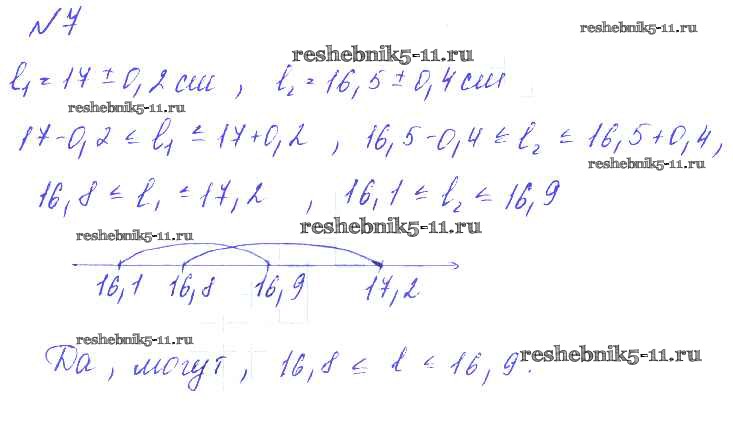 № 7
reshebnik5-11.ru
reshebnik5-11.ru
l₁ = 17 ± 0,2 см , l₂ = 16,5 ± 0,4 см
reshebnik5-11.ru
17-0,2 ≤ l₁ ≤ 17+0,2 , 16,5-0,4 ≤ l₂ ≤ 16,5+0,4,
reshebnik5-11.ru
16,8 ≤ l₁ ≤ 17,2 , 16,1 ≤ l₂ ≤ 16,9
reshebnik5-11.ru
reshebnik5-11.ru
16,1 16,8 16,9 17,2
reshebnik5-11.ru
reshebnik5-11.ru
Да, могут, 16,8 ≤ l ≤ 16,9.